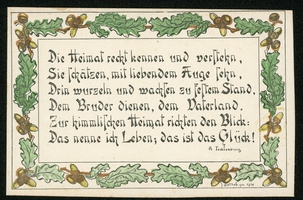 Die Heimat recht kennen und verstehn,
Sie schätzen, mit liebendem Auge sehn,
Drin wurzeln und wachsen zu festem Stand,
Dem Bruder dienen, dem Vaterland,
Zur himmlischen Heimat richten den Blick:
Das nenne ich Leben; das ist das Glück!